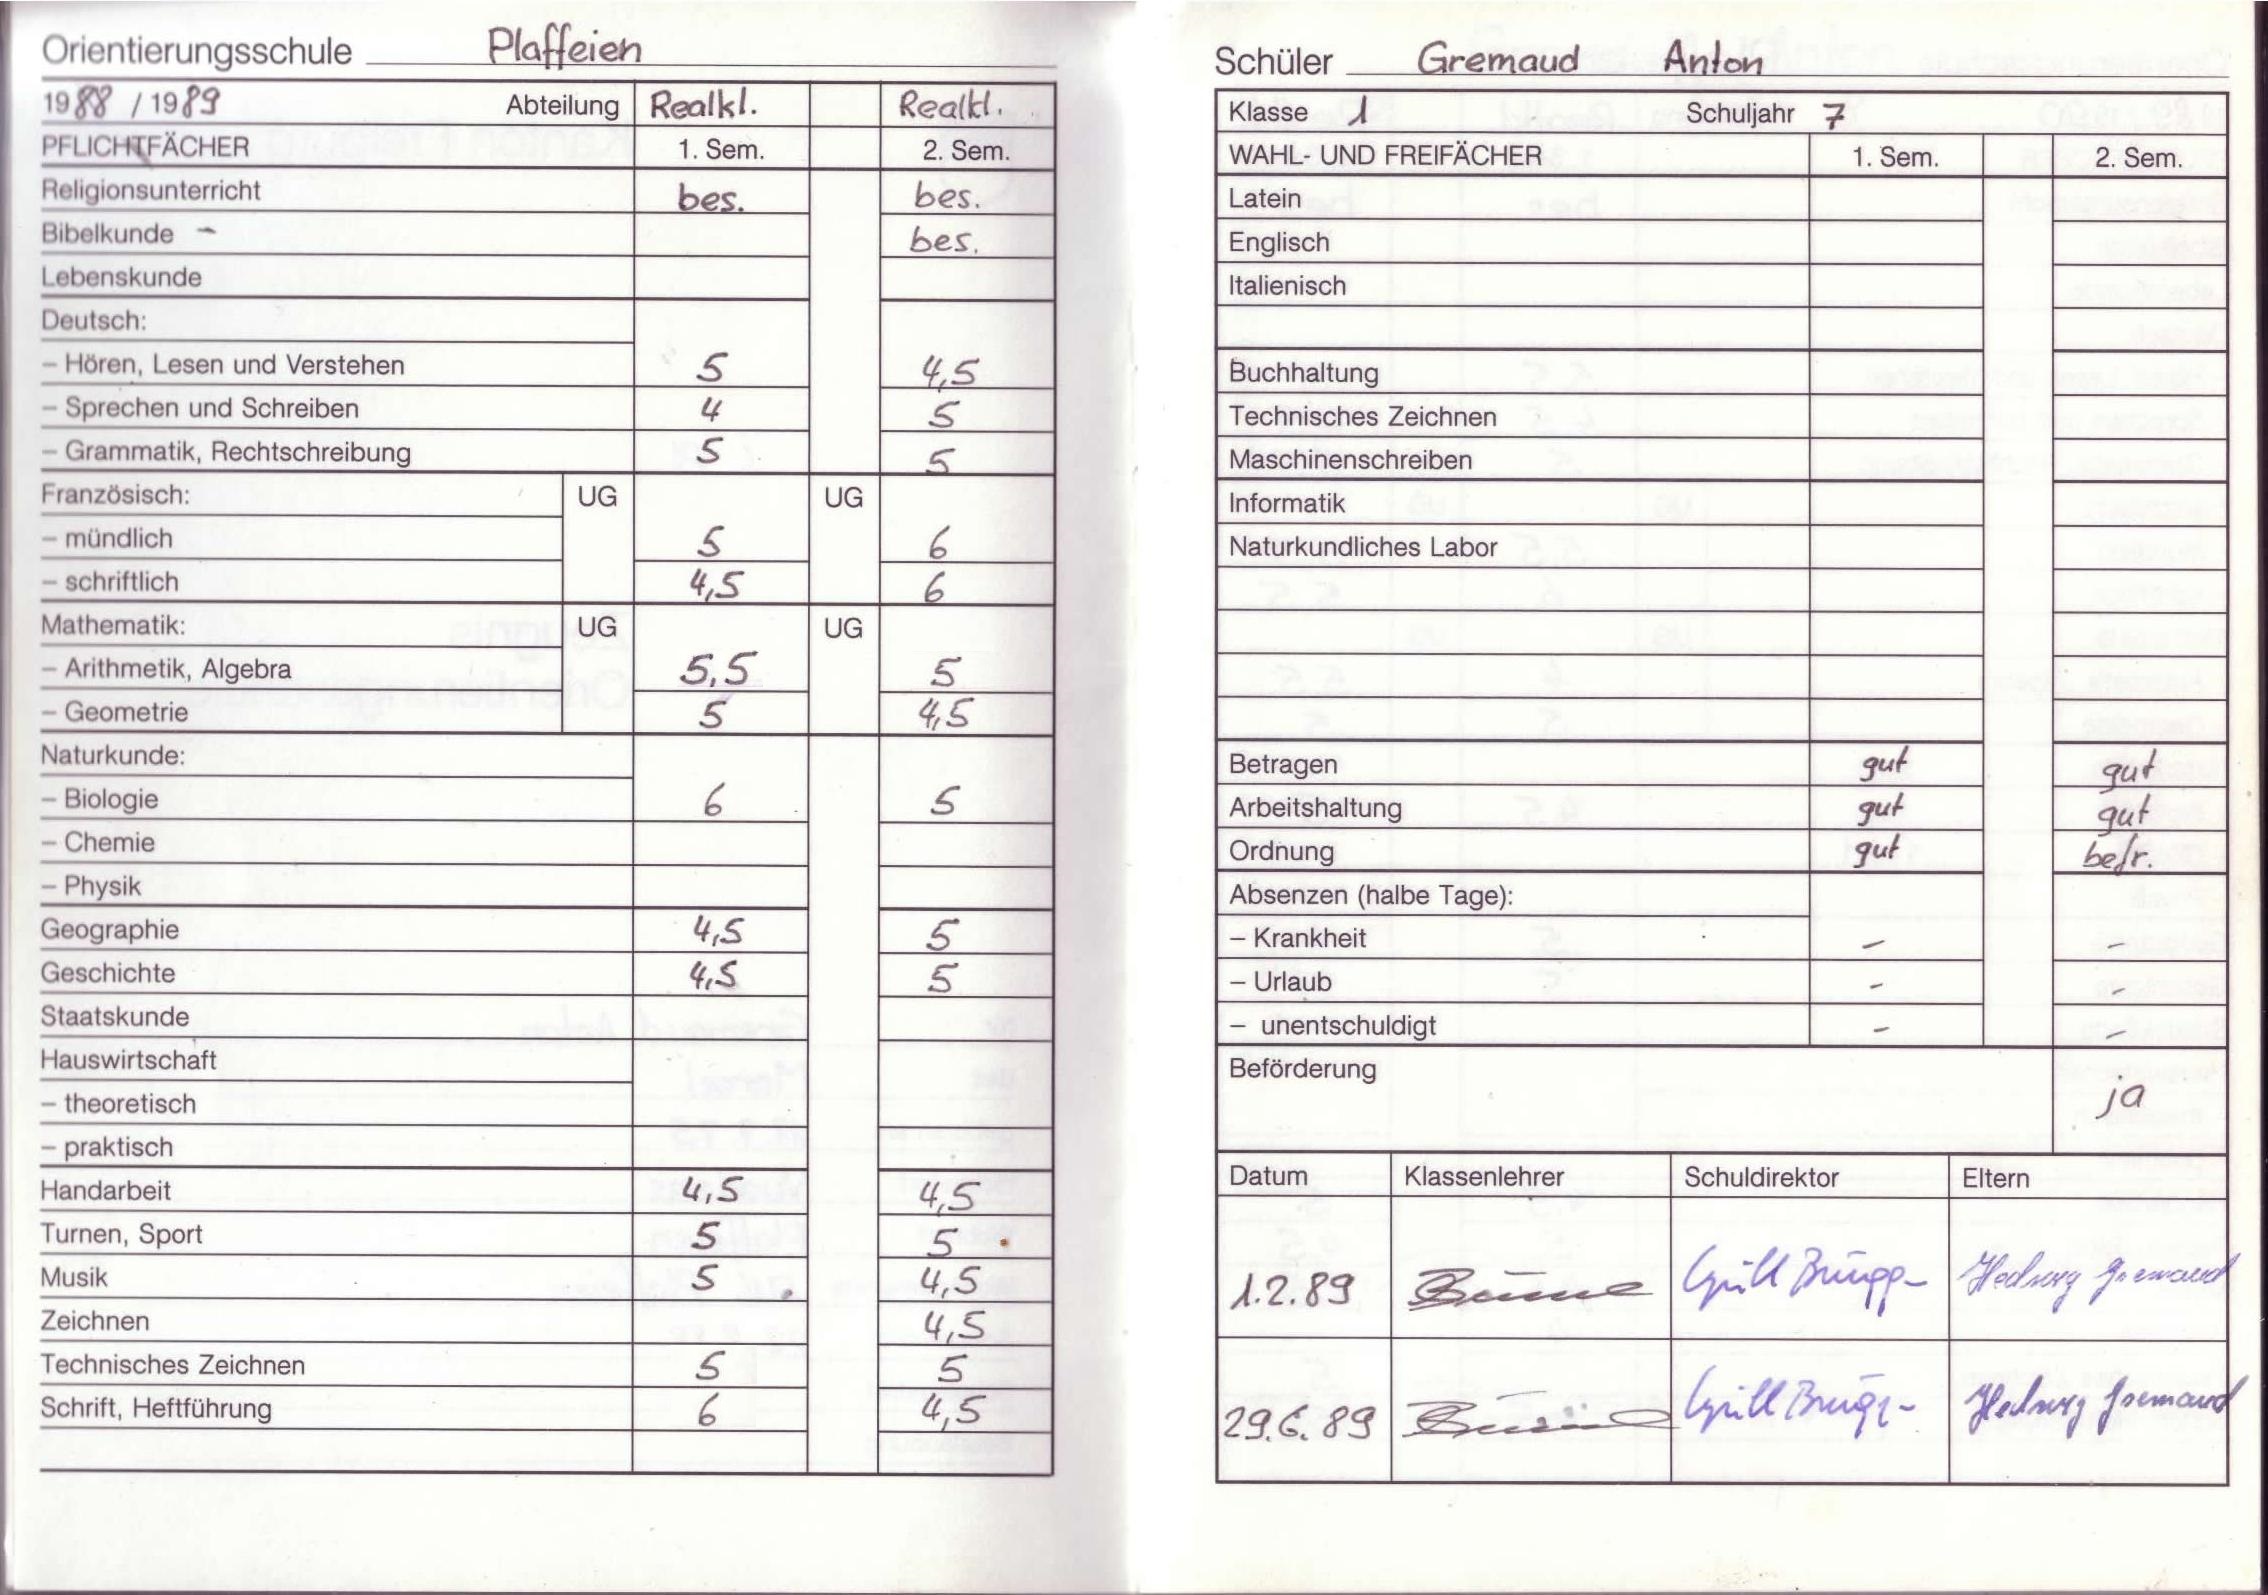 Orientierungsschule Plaffeien
1988 / 1989 Abteilung Realkl. Realkl.
PFLICHTFÄCHER 1. Sem. 2. Sem.
Religionsunterricht bes. bes.
Bibelkunde - bes.
Lebenskunde
Deutsch:
– Hören, Lesen und Verstehen 5 4,5
– Sprechen und Schreiben 4 5
– Grammatik, Rechtschreibung 5 5
Französisch: UG UG
– mündlich 5 6
– schriftlich 4,5 6
Mathematik: UG UG
– Arithmetik, Algebra 5,5 5
– Geometrie 5 4,5
Naturkunde:
– Biologie 6 5
– Chemie
– Physik
Geographie 4,5 5
Geschichte 4,5 5
Staatskunde
Hauswirtschaft
– theoretisch
– praktisch
Handarbeit 4,5 4,5
Turnen, Sport 5 5
Musik 5 4,5
Zeichnen 4,5
Technisches Zeichnen 5 5
Schrift, Heftführung 6 4,5
Schüler Gremaud Anton
Klasse 1 Schuljahr 7
WAHL- UND FREIFÄCHER 1. Sem. 2. Sem.
Latein
Englisch
Italienisch
Buchhaltung
Technisches Zeichnen
Maschinenschreiben
Informatik
Naturkundliches Labor
Betragen gut gut
Arbeitshaltung gut gut
Ordnung gut befr.
Absenzen (halbe Tage):
– Krankheit – –
– Urlaub – –
– unentschuldigt – –
Beförderung ja
Datum Klassenlehrer Schuldirektor Eltern
1.2.89 Hedwig Gremaud
29.6.89 Hedwig Gremaud